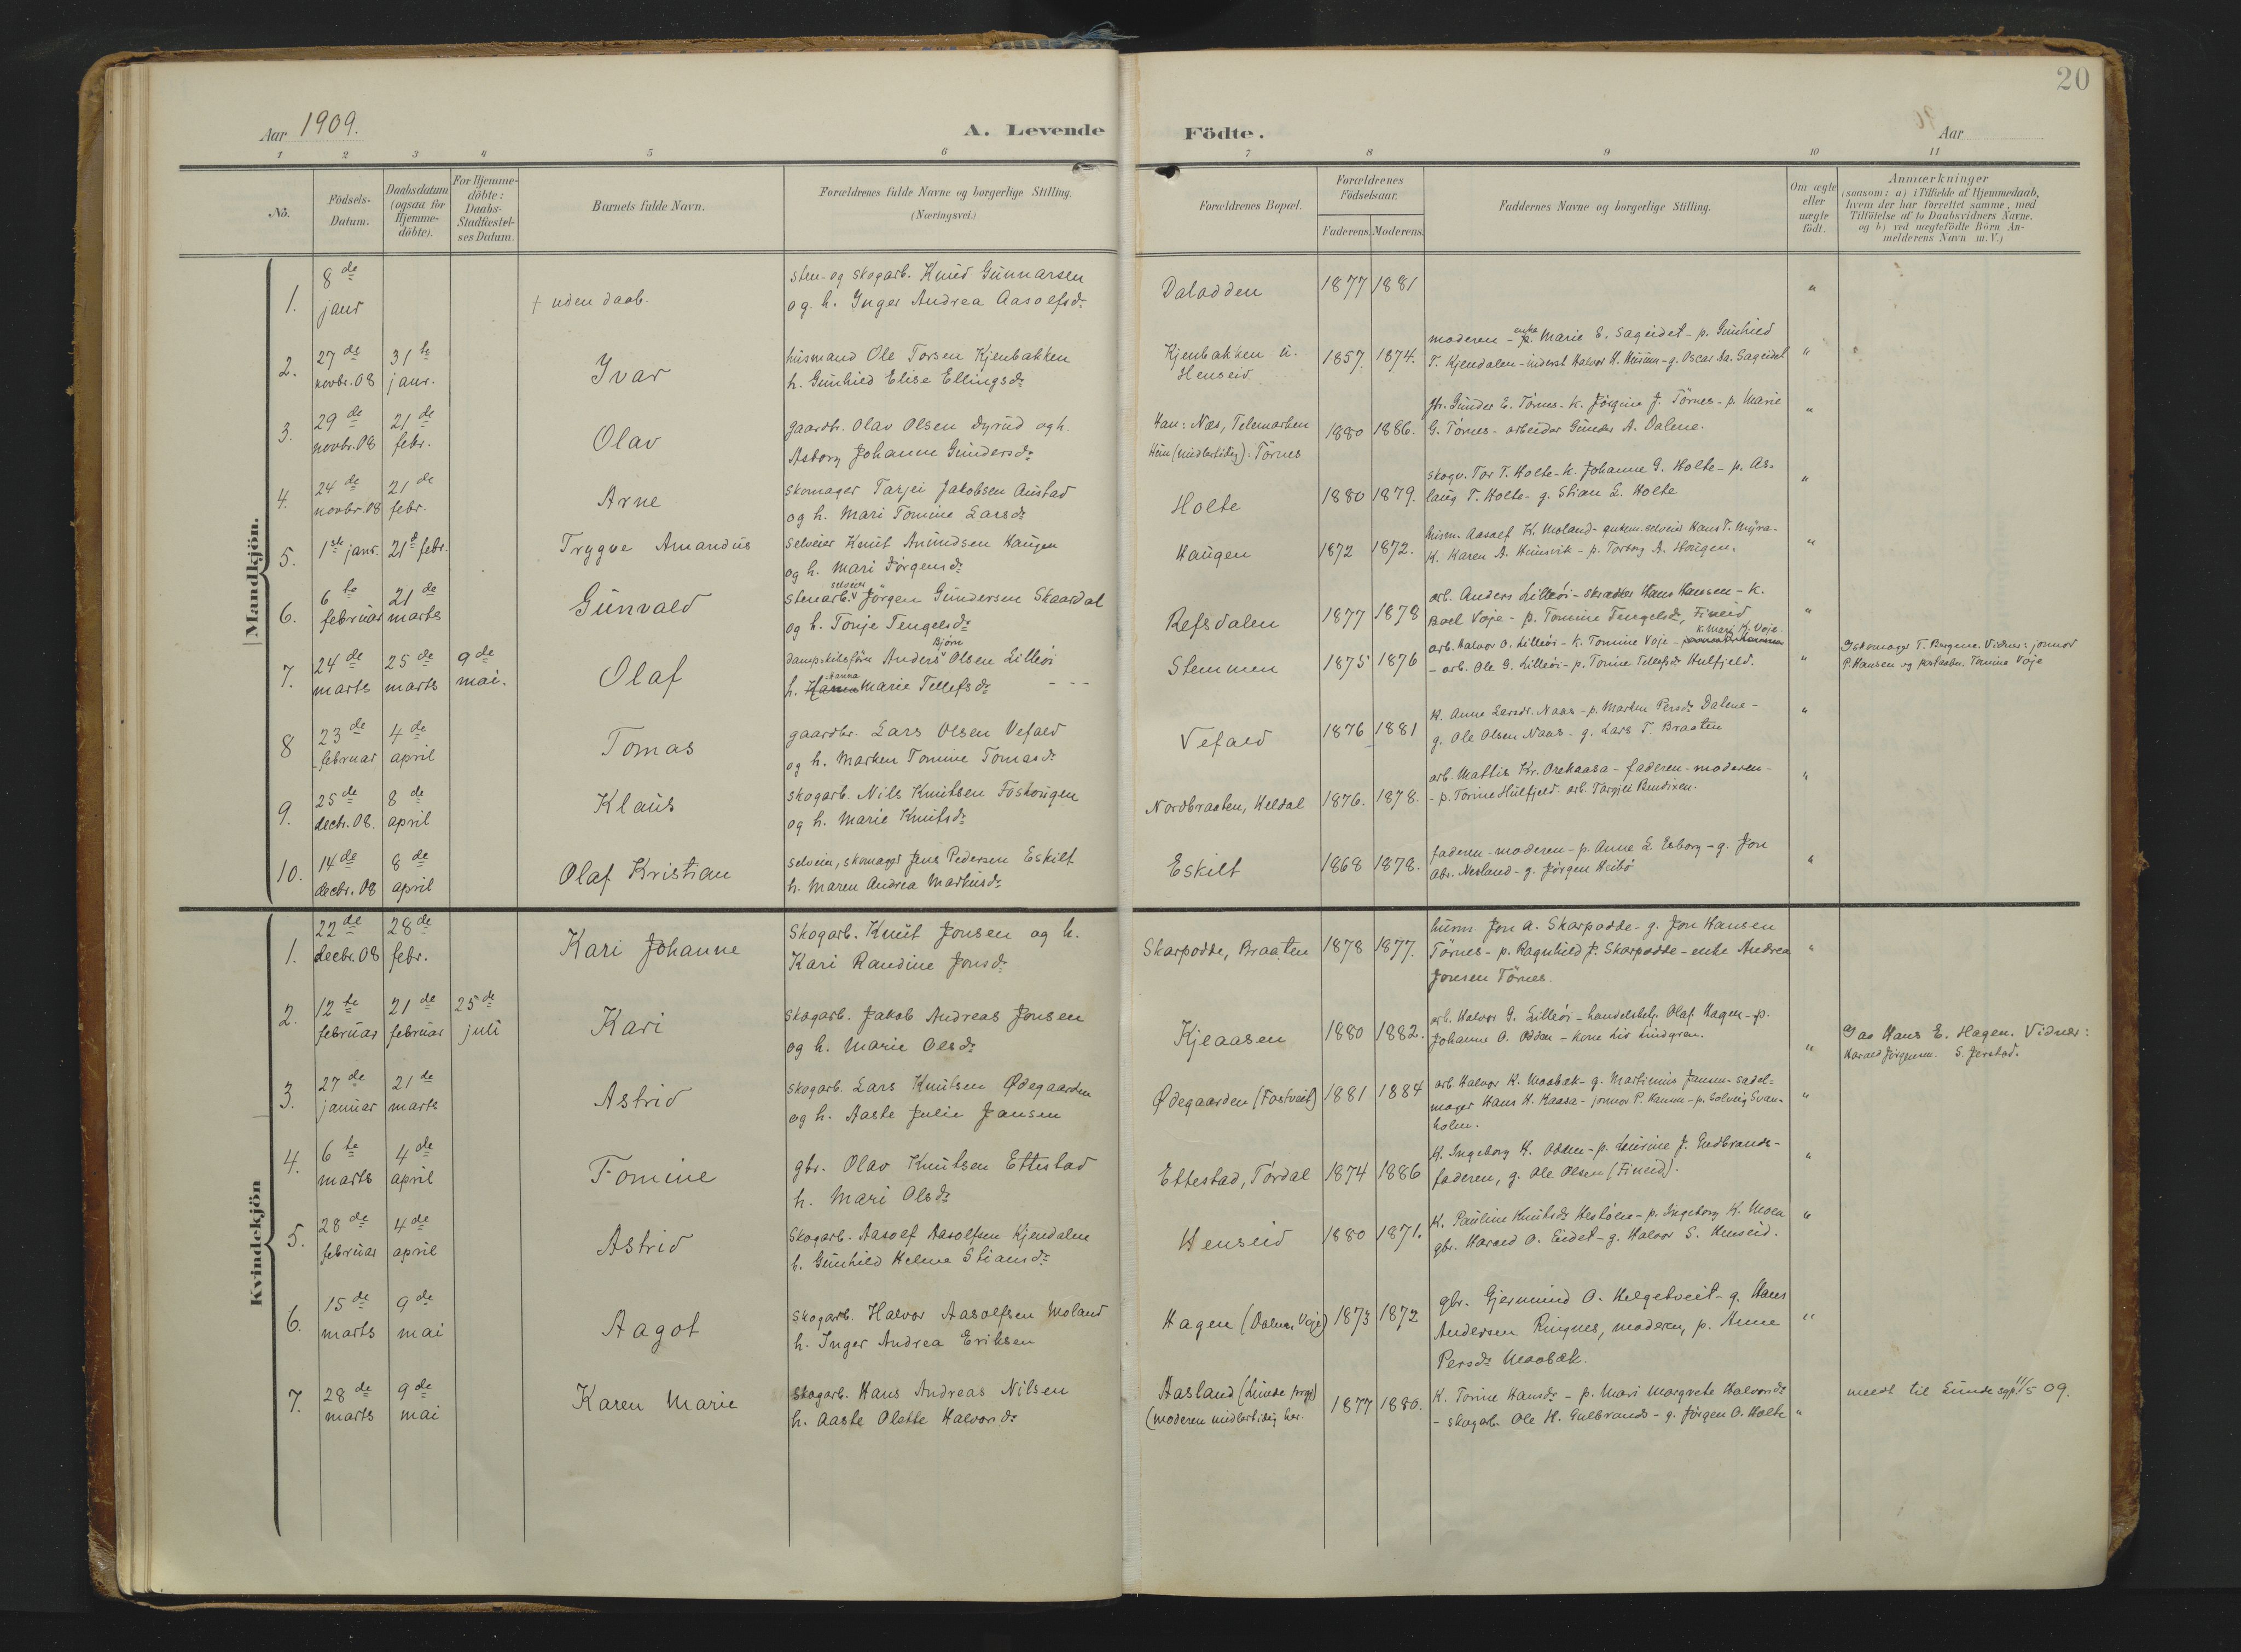 20
Aar 1909.
A. Levende
Födte.
Aar
1 2 3 4 5 6 7 8 9 10 11
No.
Födsels-
Datum.
Daabsdatum
(ogsaa for
Hjemme-
döbte).
For Hjemme-
döbte:
Daabs-
Stadfæstel-
ses Datum.
Barnets fulde Navn.
Forældrenes fulde Navne og borgerlige Stilling.
(Næringsvei.)
Forældrenes Bopæl.
Forældrenes
Födselsaar.
Faderens. Moderens.
Faddernes Navne og borgerlige Stilling.
Om ægte
eller
uægte
födt.
Anmærkninger
(saasom: a) i Tilfælde af Hjemmedaab,
hvem der har forrettet samme, med
Tilföielse af to Daabsvidners Navne,
og b) ved uægtefödte Börn An-
melderens Navn m. V.)
Mandkjön.
1.
8de
janr
† uden daab.
Sten- og skogarb. Knud Gunnarsen
og h. Inger Andrea Aasolfsdr
Dalodden
1877 1881
"
2.
27de
novbr. 08
31te
janr.
Ivar
husmand Ole Torsen Kjenbakken
h. Gunhild Elise Ellingsdr
Kjenbakken u.
Henseid
1857. 1874.
moderen - enke Marie E. Sageidet - p. Gunhild
T. Kjendalen - inderst Halvor H. - g. Oscar Sageidet
"
3.
29de
novbr. 08
21de
febr.
Olav
gaardbr. Olav Olsen Dyrud og h.
Asborg Johanne Gundersdr
Han: Næs, Telemarken
Hun (midlertidig): Törnes
1880 1886.
gbr. Gunder E. Törnes - k. Jörgine J. Törnes - p. Marie
G. Törnes - arbeider Gunder A. Dalene.
"
4.
24de
novbr. 08
21de
febr.
Arne
Skomager Tarjei Jakobsen Austad
og h. Mari Tomine Larsdr
Holte
1880 1879.
skogv. Tor T. Holte - k. Johanne G. Holte - p. As-
laug T. Holte - g. Stian L. Holte
"
5.
1ste janr.
21de febr.
Trygve Amandus
Selveier Knut Amundsen Haugen
og h. Mari Jörgensdr
Haugen
1872 1872.
husm. Aasolf K. Moland - selveier Hans T. Myra -
k. Karen A. - p. Torborg A. Hougen.
"
6.
6te
februar
21de
marts
Gunvald
selveier
stenarb. Jörgen Gundersen Skaardal
og h. Tonje Tengelsdr
Refsdalen
1877 1878
arb. Anders Lilleöi - skrædder Hans Hansen - k.
Voje - p. Tomine Tengelsdr, Fineid
"
7.
24de
marts
25de
marts
9de
mai.
Olaf
Björn
Dampskibsförer Anders Olsen Lilleöi
Hanna
h. Hanna Marie Tellefsdr - - -
Stemmen
1875 1876
k. Mari K. Voje.
arb. Halvor O. Lilleöi - k. Tomine Voje -
- arb. Ole G. Lilleöi - p. Tomine Tellefsdr Hulfjeld.
"
T. Vidner: jomor
P. Hansen og Tomine Voje
8
23de
februar
4de
april
Tomas
gaardbr. Lars Olsen Vefald
og h. Marken Tomine Tomasdr
Vefald
1876 1881
k. Anne Larsdr. Naas - p. Marken Persdr Dalene -
g. Ole Olsen Naas - g. Lars T. Braaten
"
9.
25de
decbr. 08.
8de
april
Klaus
skogarb. Nils Knutsen Foshougen
og h. Marie Knutsdr
Nordbraaten, Heldal
1876. 1878.
arb. Mattis Kr. Orekaasa - faderen - moderen -
- p. Torine Hulfjeld - arb. Targjei Bendixen.
"
10.
14de
decbr. 08
8de
april
Olaf Kristian
selveier, skomager Jens Pedersen Eskilt
h. Maren Andrea Markusdr
Eskilt
1868 1878.
faderen - moderen - p. Anne L. Esborg - g. Jon
Abr. Nesland - g. Jörgen Heibö
"
Kvindekjön
1.
22de
decbr. 08
28de
febr.
Kari Johanne
Skogarb. Knut Jonsen og h.
Kari Randine Jonsdr
Skarpodde, Braaten
1878 1877.
husm Jon A. Skarpodde - g. Jon Hansen
Törnes - p. Ragnhild P. Skarpodde - enke Andrea
Jonsen Törnes.
"
2.
12te
februar
21de
februar
25de
juli
Kari
Skogarb. Jakob Andreas Jonsen
og h. Marie Olsdr
Kjeaasen
1880 1882.
arb. Halvor G. Lilleöi - handelsbetj. Olaf Hagen - p.
Johanne O. Oddan - kone Liv Lindgren.
"
Hans E. Hagen. Vidner:
Harald Jörgensen. S. Jerstad.
3.
27de
januar
21de
marts
Astrid
skogarb. Lars Knutsen Ødegaarden
og h. Aaste Julie Jansen
Ødegaarden (Fostveit)
1881 1884
arb. Halvor K. Moobæk - g. Martinius Jansen - sadel-
mager Hans H. Kaasa - jomor P. Hansen - p. Solveig Svan-
holm.
"
4.
6te
marts
4de
april
Tomine
gbr. Olav Knutsen Ettestad
h. Mari Olsdr
Ettestad, Tördal
1874 1886
k. Ingeborg K. Odden - p. Laurine J. Gudbrands -
faderen, g. Ole Olsen (Fineid).
"
5.
28de
februar
4de
april
Astrid
Skogarb. Aasolf Aasolfsen Kjendalen
h. Gunhild Helene Stiansdr
Henseid
1880 1871.
k. Pauline Knutsdr Hestöen - p. Ingeborg K. Moen
gbr. Harald O. Eidet - g. Halvor S. Henseid.
"
6.
15de
marts
9de
mai
Aagot
Skogarb. Halvor Aasolfsen Moland
h. Inger Andrea Eriksen
Hagen (Dalene, Voje)
1873 1872
gbr. Gjermund O. Helgetveit - g. Hans
Andersen Ringnes, moderen, p. Anne
Persdr Moobæk.
"
7.
28de
marts
9de
mai
Karen Marie
Skogarb. Hans Andreas Nilsen
h. Aaste Olette Halvorsdr
Aasland (Lunde prgj)
(moderen midlertidig her.
1877 1880.
k. Torine Hansdr - p. Mari Margrete Halvorsdr
- skogarb. Ole H. Gulbrands - g. Jörgen O. Holte
"
meldt til Lunde sgp. 11/5 09.